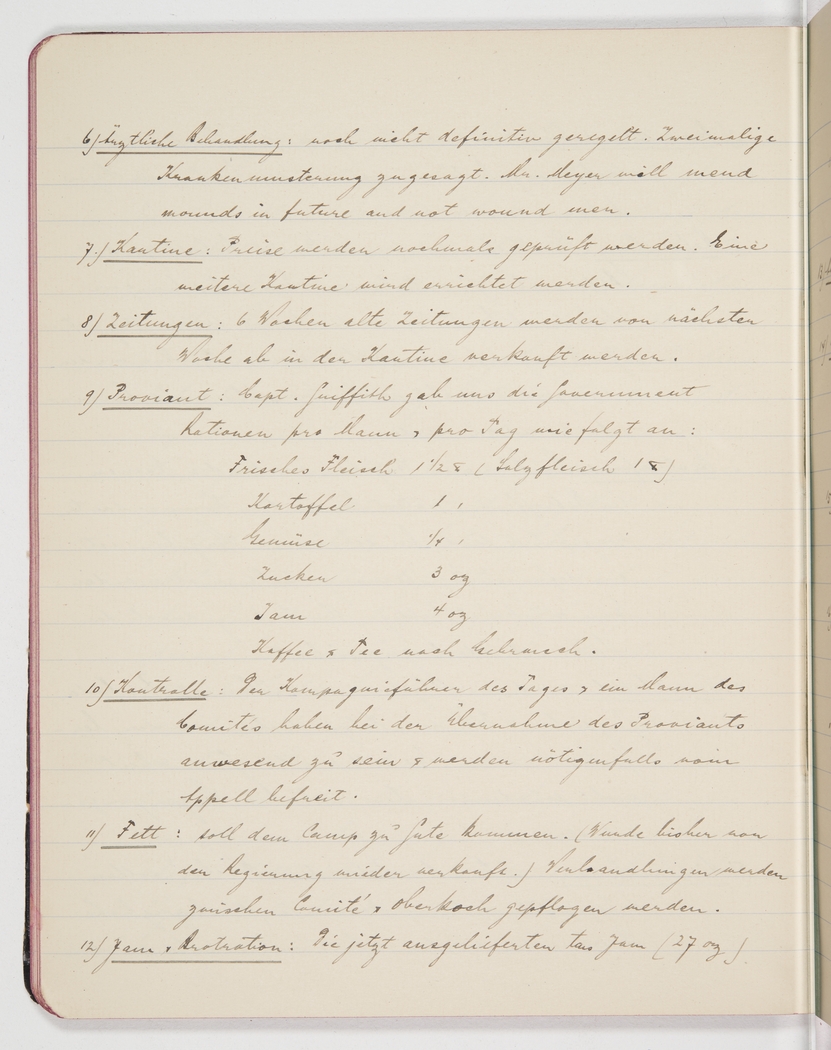 6) Ärztliche Behandlung: noch nicht definitiv geregelt. Zweimalige
Krankenmusterung zugesagt. Mr. Meyer will mend
wounds in future and not wound men.
7.) Kantine: Preise werden nochmals geprüft werden. Eine
weitere Kantine wird errichtet werden.
8) Zeitungen: 6 Wochen alte Zeitungen werden von nächsten
Woche ab in der Kantine verkauft werden.
9) Proviant: Capt. Griffith gab uns die Government
Rationen pro Mann & pro Tag wie folgt an:
Frisches Fleisch 1 1/2 ℔ (Salzfleisch 1 ℔)
Kartoffel 1 "
Gemüse 1/4 "
Zucker 3 oz
Jam 4 oz
Kaffee & Tee nach Gebrauch.
10) Kontrolle: Der Kompagnieführer des Tages & ein Mann des
Comités haben bei der Übernahme des Proviants
anwesend zu sein & werden nötigenfalls vom
Appell befreit.
11) Fett: soll dem Camp zu Gute kommen. (Wurde bisher von
der Regierung wieder verkauft.) Verhandlungen werden
zwischen Comité & Oberkoch gepflogen werden.
12) Jam & Brotration: Die jetzt ausgelieferten tins Jam (27 oz)